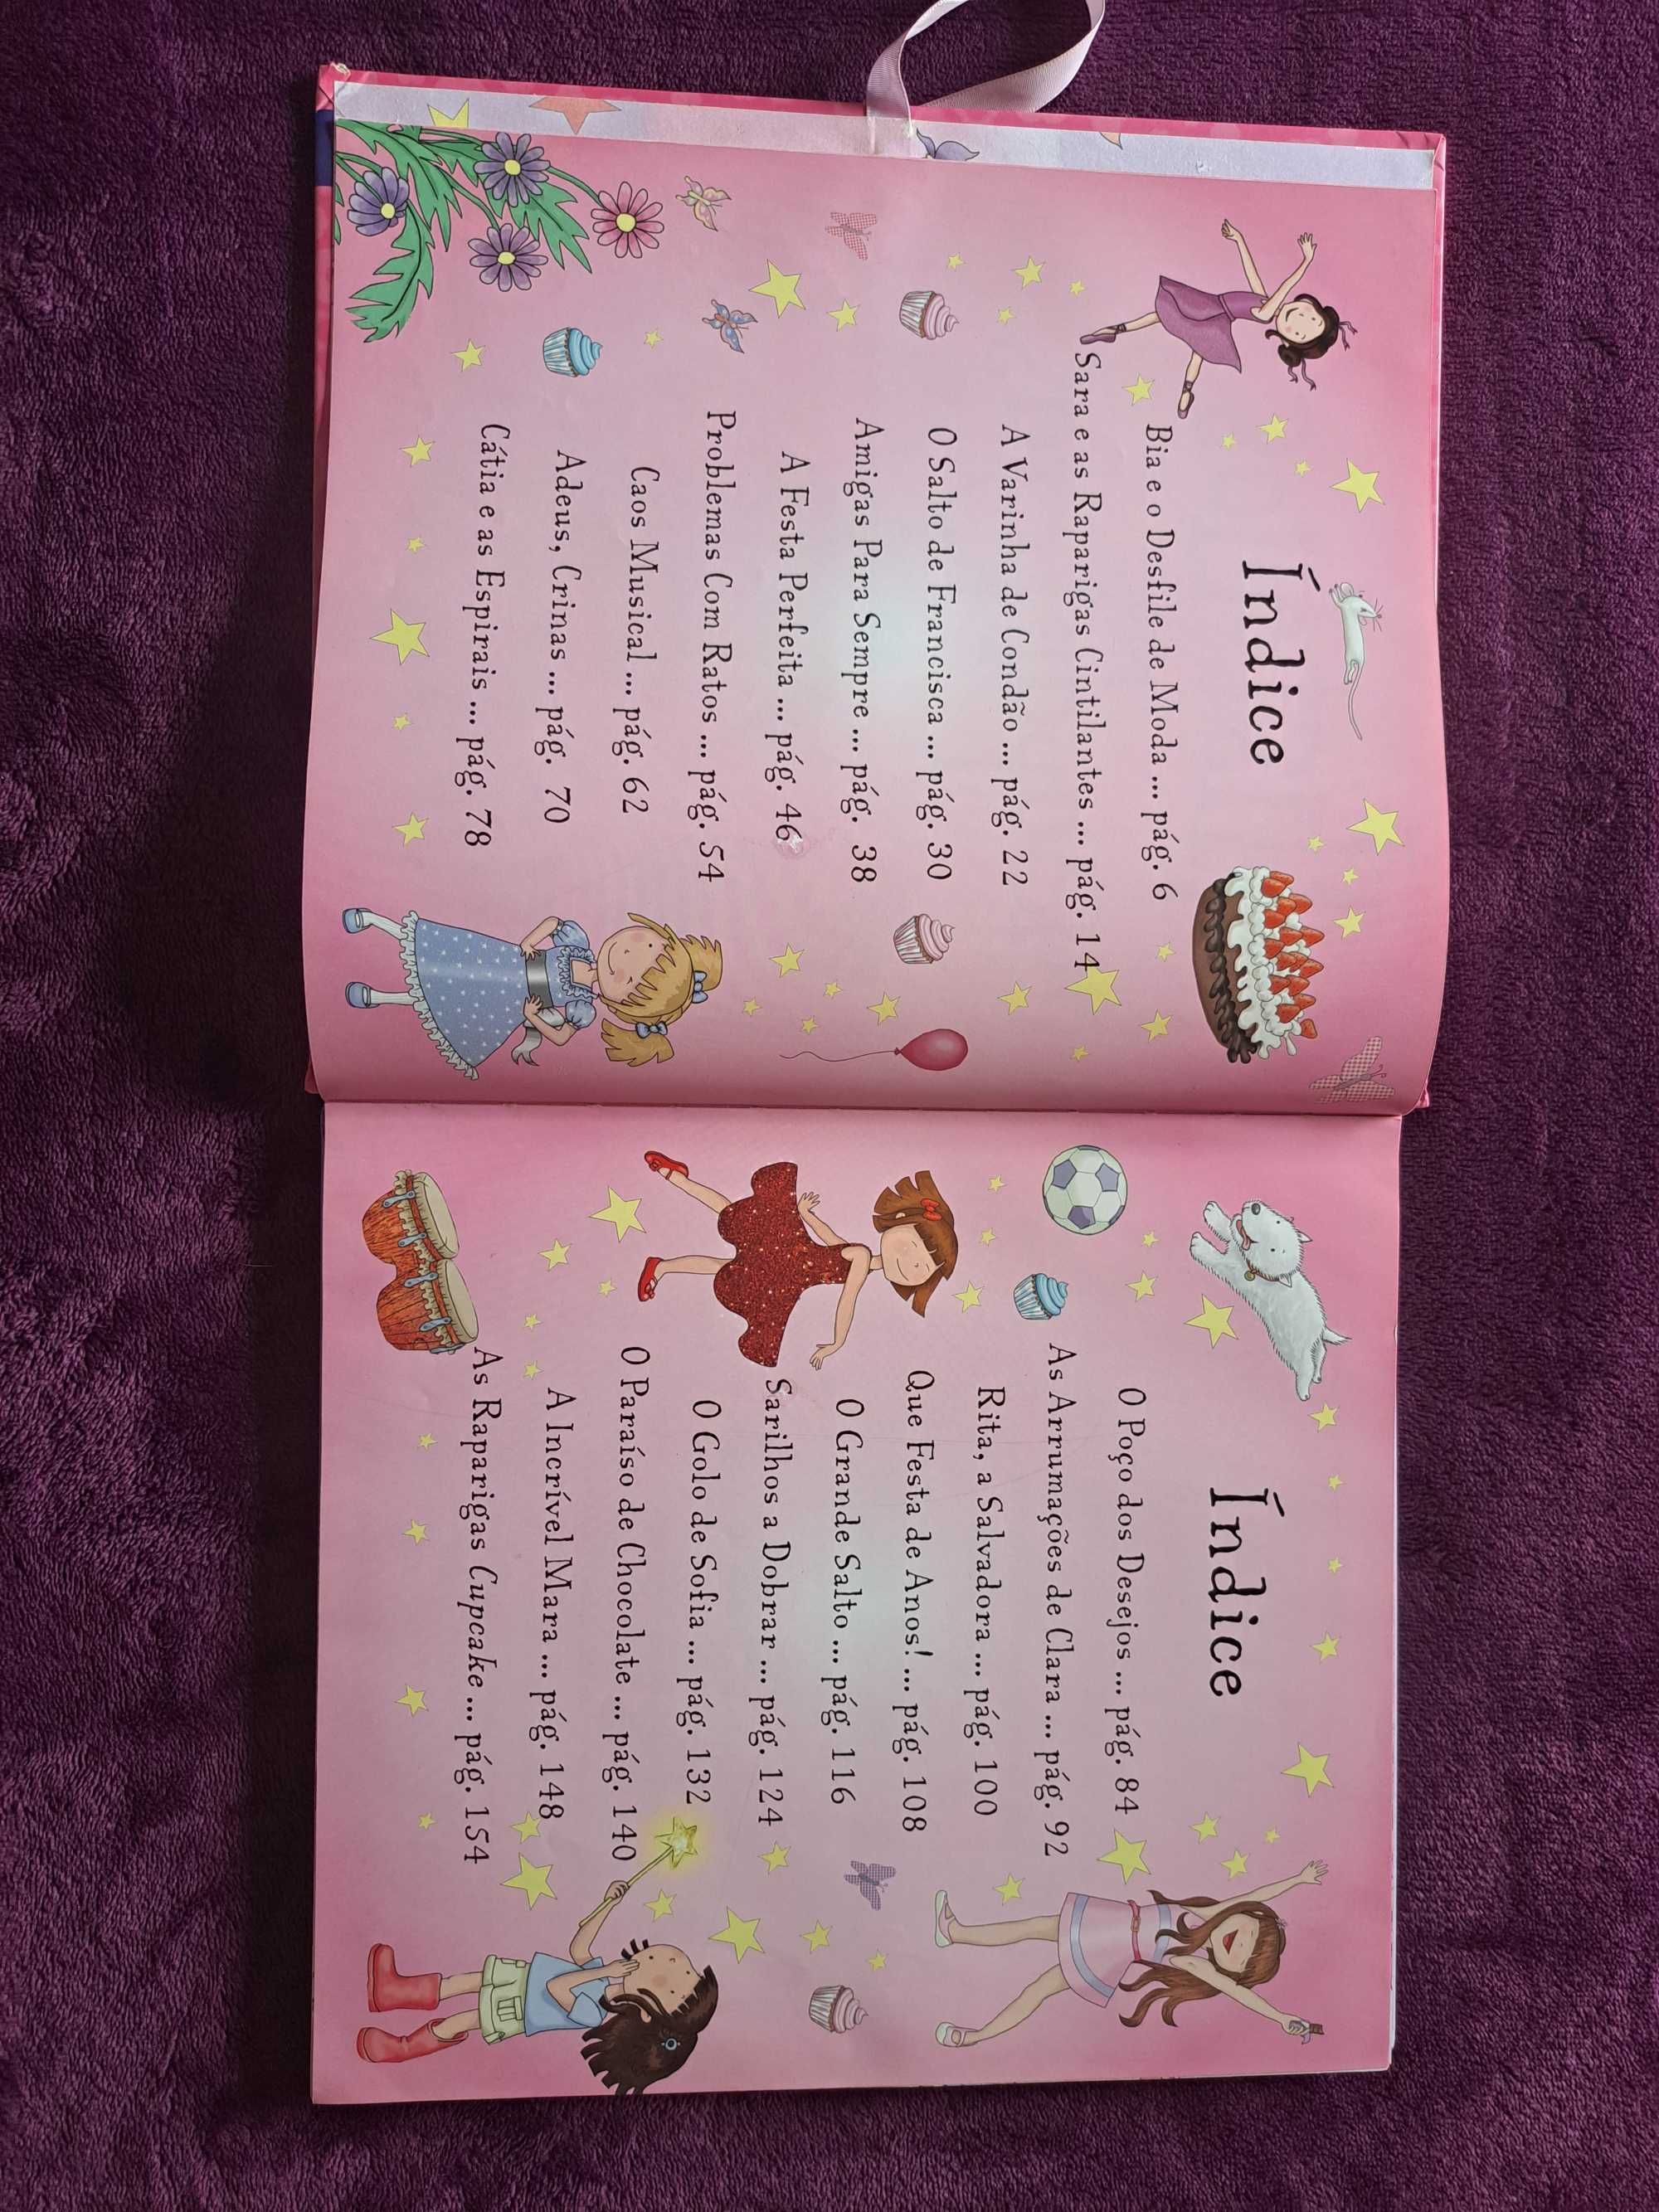 Índice
Bia e o Desfile de Moda ... pág. 6
Sara e as Raparigas Cintilantes ... pág. 14
A Varinha de Condão ... pág. 22
O Salto de Francisca ... pág. 30
Amigas Para Sempre ... pág. 38
A Festa Perfeita ... pág. 46
Problemas Com Ratos ... pág. 54
Caos Musical ... pág. 62
Adeus, Crinas ... pág. 70
Cátia e as Espirais ... pág. 78
Índice
O Poço dos Desejos ... pág. 84
As Arrumações de Clara ... pág. 92
Rita, a Salvadora ... pág. 100
Que Festa de Anos! ... pág. 108
O Grande Salto ... pág. 116
Sarilhos a Dobrar ... pág. 124
O Golo de Sofia ... pág. 132
O Paraíso de Chocolate ... pág. 140
A Incrível Mara ... pág. 148
As Raparigas Cupcake ... pág. 154